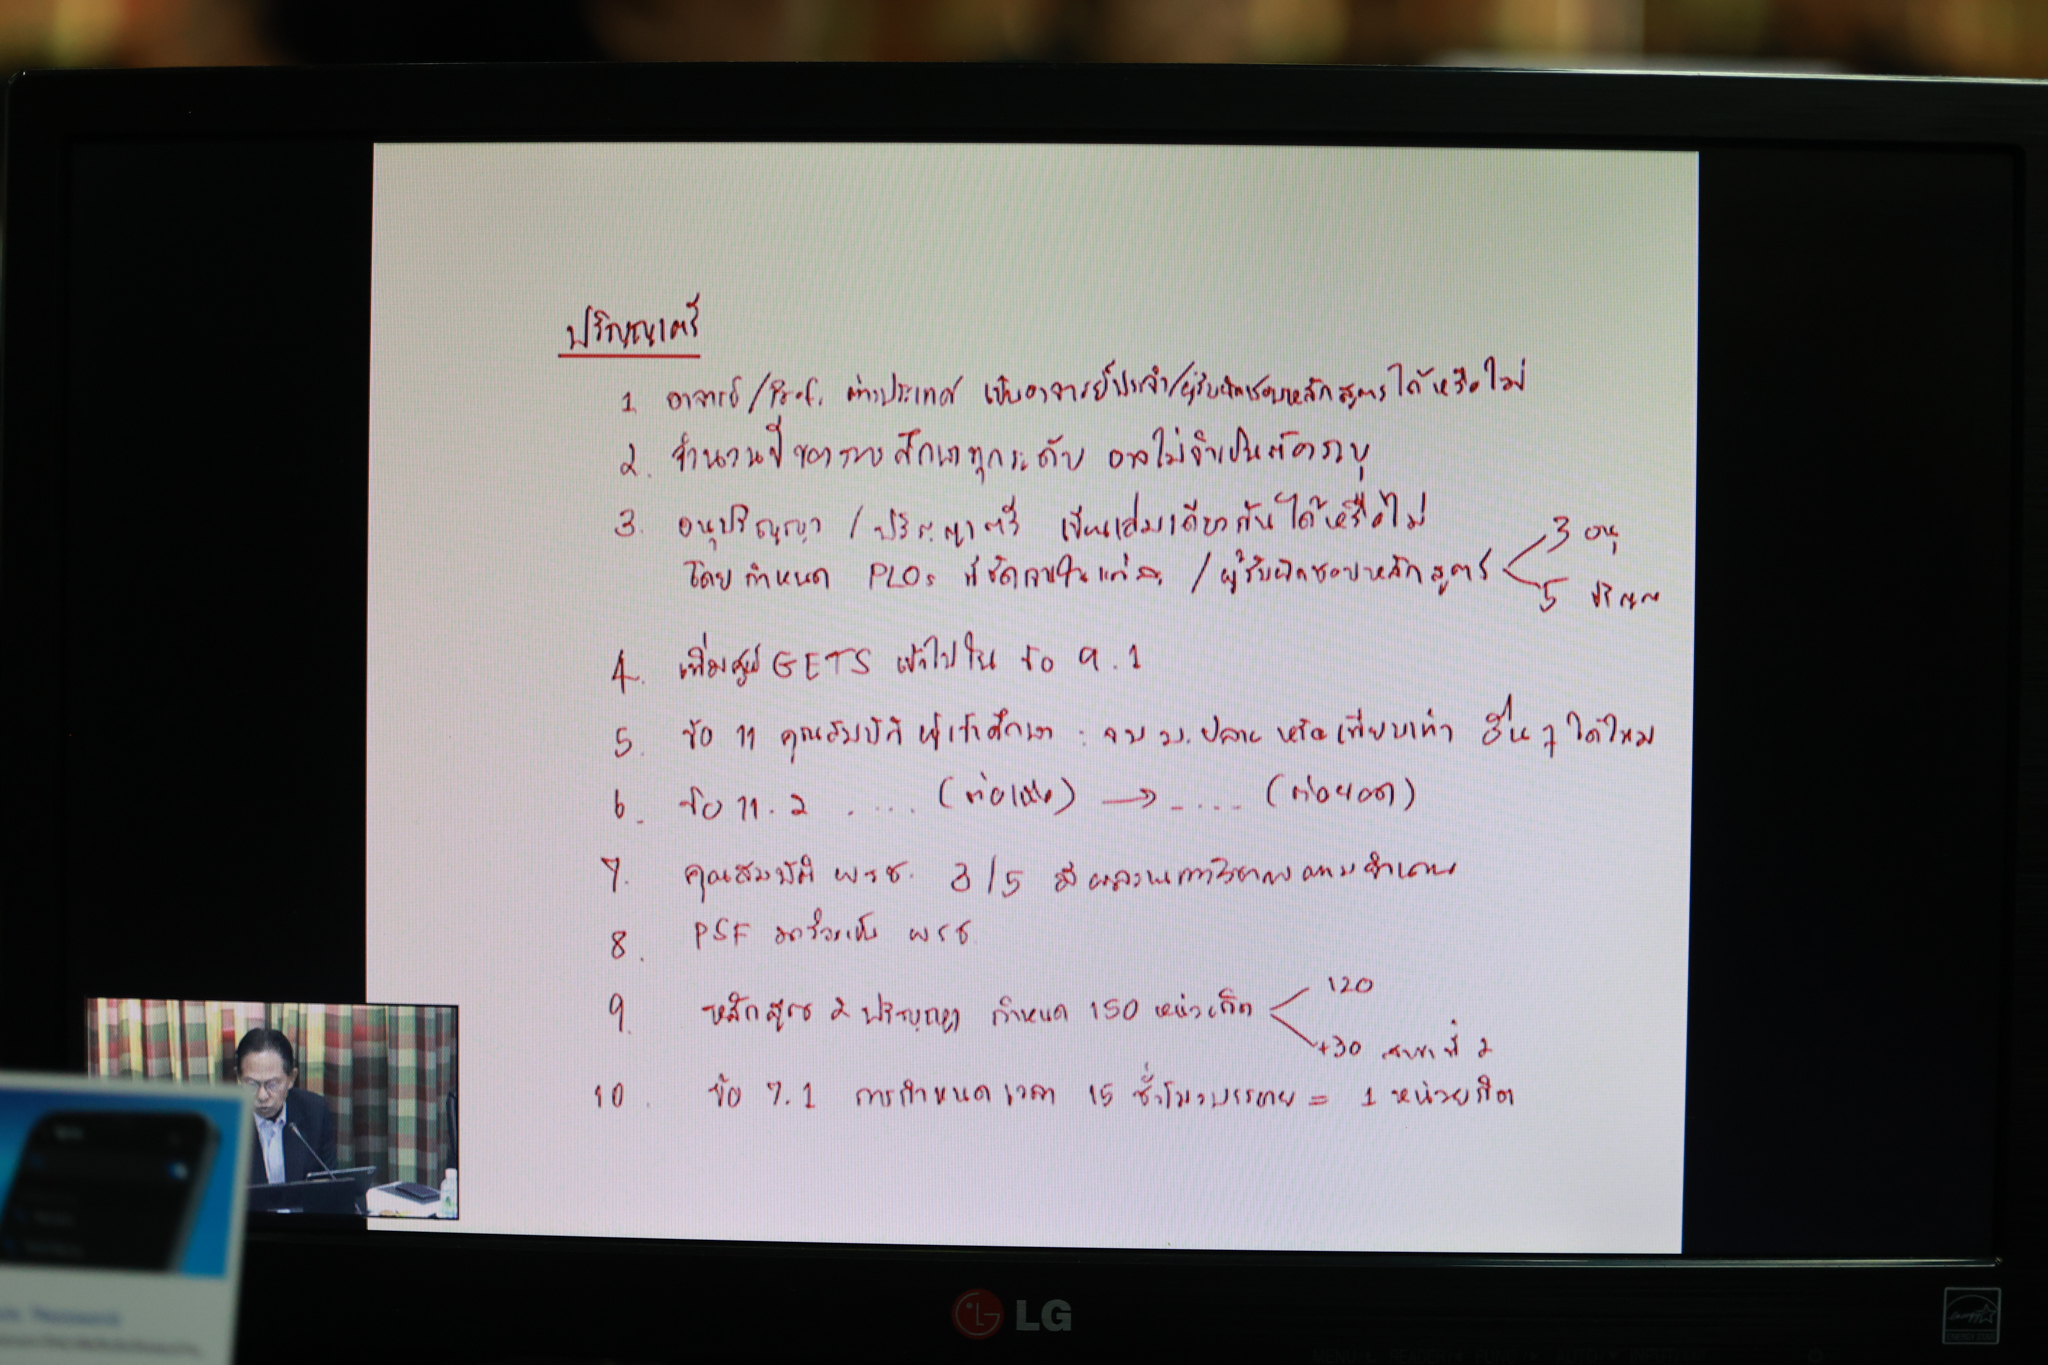 ปริญญาตรี
1 อาจารย์/Prof. ต่างประเทศ เป็นอาจารย์ประจำ/ผู้รับผิดชอบหลักสูตรได้หรือไม่
2. จำนวนปีของการศึกษาทุกระดับ อาจไม่จำเป็นต้องระบุ
3. อนุปริญญา / ปริญญาตรี เขียนเล่มเดียวกันได้หรือไม่
โดยกำหนด PLOs ที่ชัดเจนในแต่ละ / ผู้รับผิดชอบหลักสูตร
3 อนุ
5 ปริญญา
4. เพิ่มศูนย์ GETS เข้าไปใน ข้อ 9.1
5. ข้อ 11 คุณสมบัติผู้เข้าศึกษา : จบ ม.ปลาย หรือเทียบเท่า อื่นๆ ได้ไหม
6. ข้อ 11.2 .... (ต่อเนื่อง) → .... (ต่อยอด)
7. คุณสมบัติ ผรช. 3/5 มีผลงานทางวิชาการตามจำนวน
8. PSF ผรช
9. หลักสูตร 2 ปริญญา กำหนด 150 หน่วยกิต
120
+30 สาขาที่ 2
10. ข้อ 7.1 การกำหนดเวลา 15 ชั่วโมงบรรยาย = 1 หน่วยกิต
LG